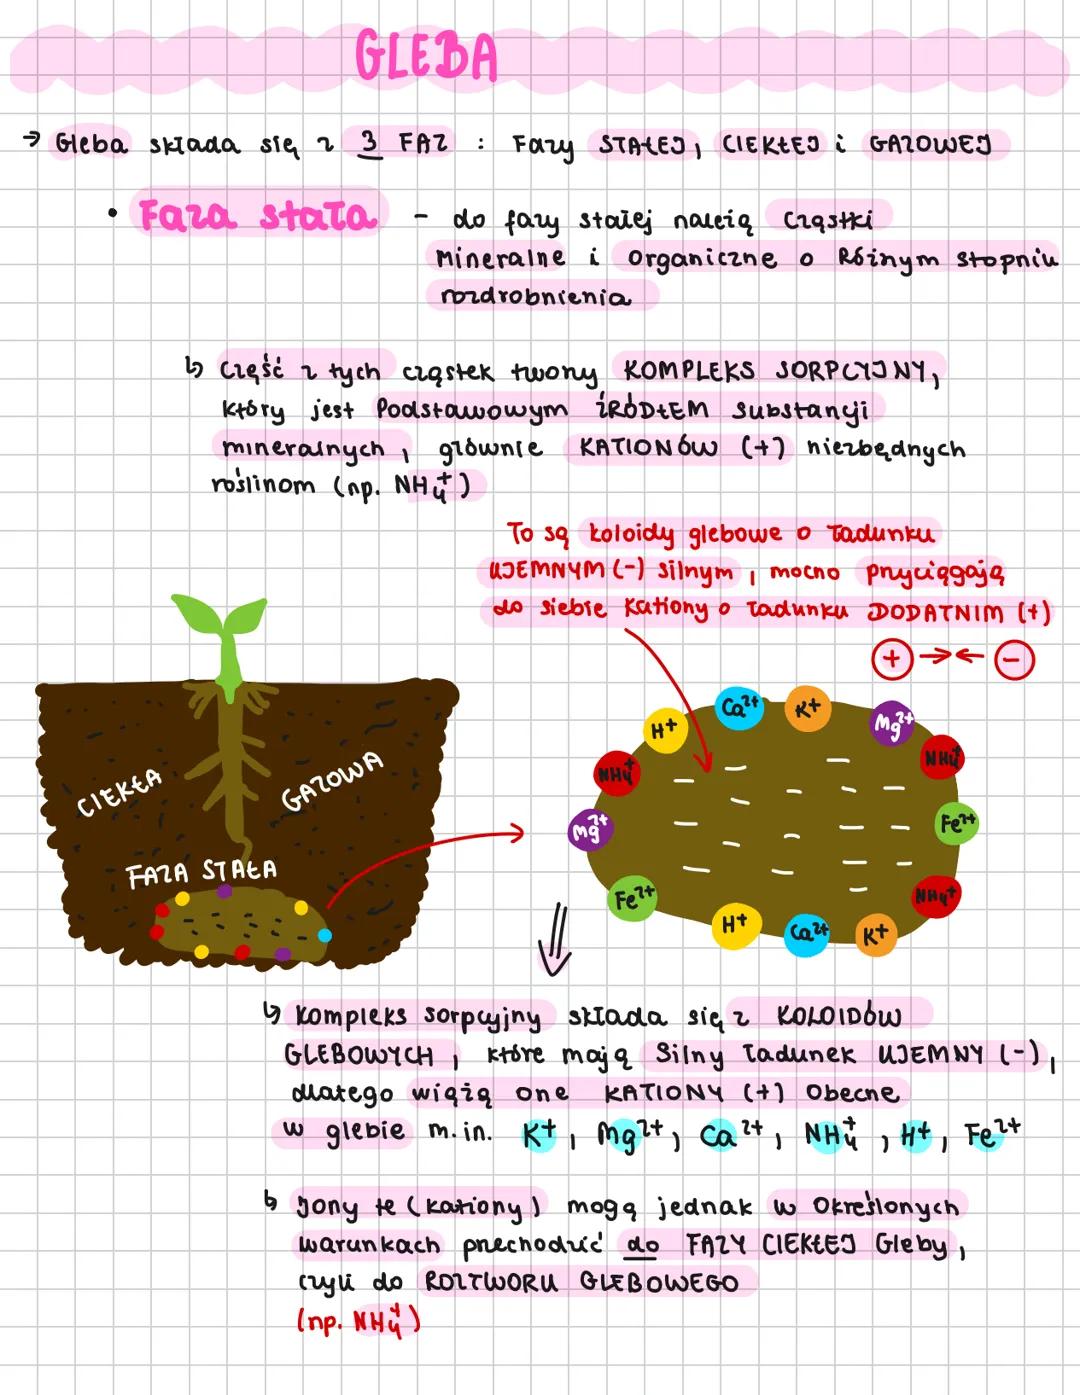 GLEBA
→ Gleba składa się z 3 FAZ : Fazy STAŁEJ, CIEKŁEJ i GAZOWEJ
• Faza stała - do fazy stałej należą Cząstki
Mineralne i organiczne o Różnym stopniu
rozdrobnienia
↳ Część z tych cząstek tworzy KOMPLEKS SORPCYJNY,
który jest Podstawowym ŹRÓDŁEM Substancji
mineralnych, głównie KATIONÓW (+) niezbędnych
roślinom (np. NH₄⁺)
To są koloidy glebowe o ładunku
UJEMNYM (-) silnym, mocno przyciągają
do siebie Kationy o ładunku DODATNIM (+)
+ →← -
CIEKŁA
GAZOWA
FAZA STAŁA
H⁺
Ca²⁺
K⁺
Mg²⁺
NH₄⁺
NH₄⁺
Mg²⁺
Fe²⁺
Fe²⁺
NH₄⁺
H⁺
Ca²⁺
K⁺
↳ Kompleks sorpcyjny składa się z KOLOIDÓW
GLEBOWYCH, które mają Silny ładunek UJEMNY (-),
dlatego wiążą one KATIONY (+) Obecne
w glebie m.in. K⁺, Mg²⁺, Ca²⁺, NH₄⁺, H⁺, Fe²⁺
↳ Jony te (kationy) mogą jednak w Określonych
warunkach przechodzić do FAZY CIEKŁEJ Gleby,
czyli do ROZTWORU GLEBOWEGO
(np. NH₄⁺)